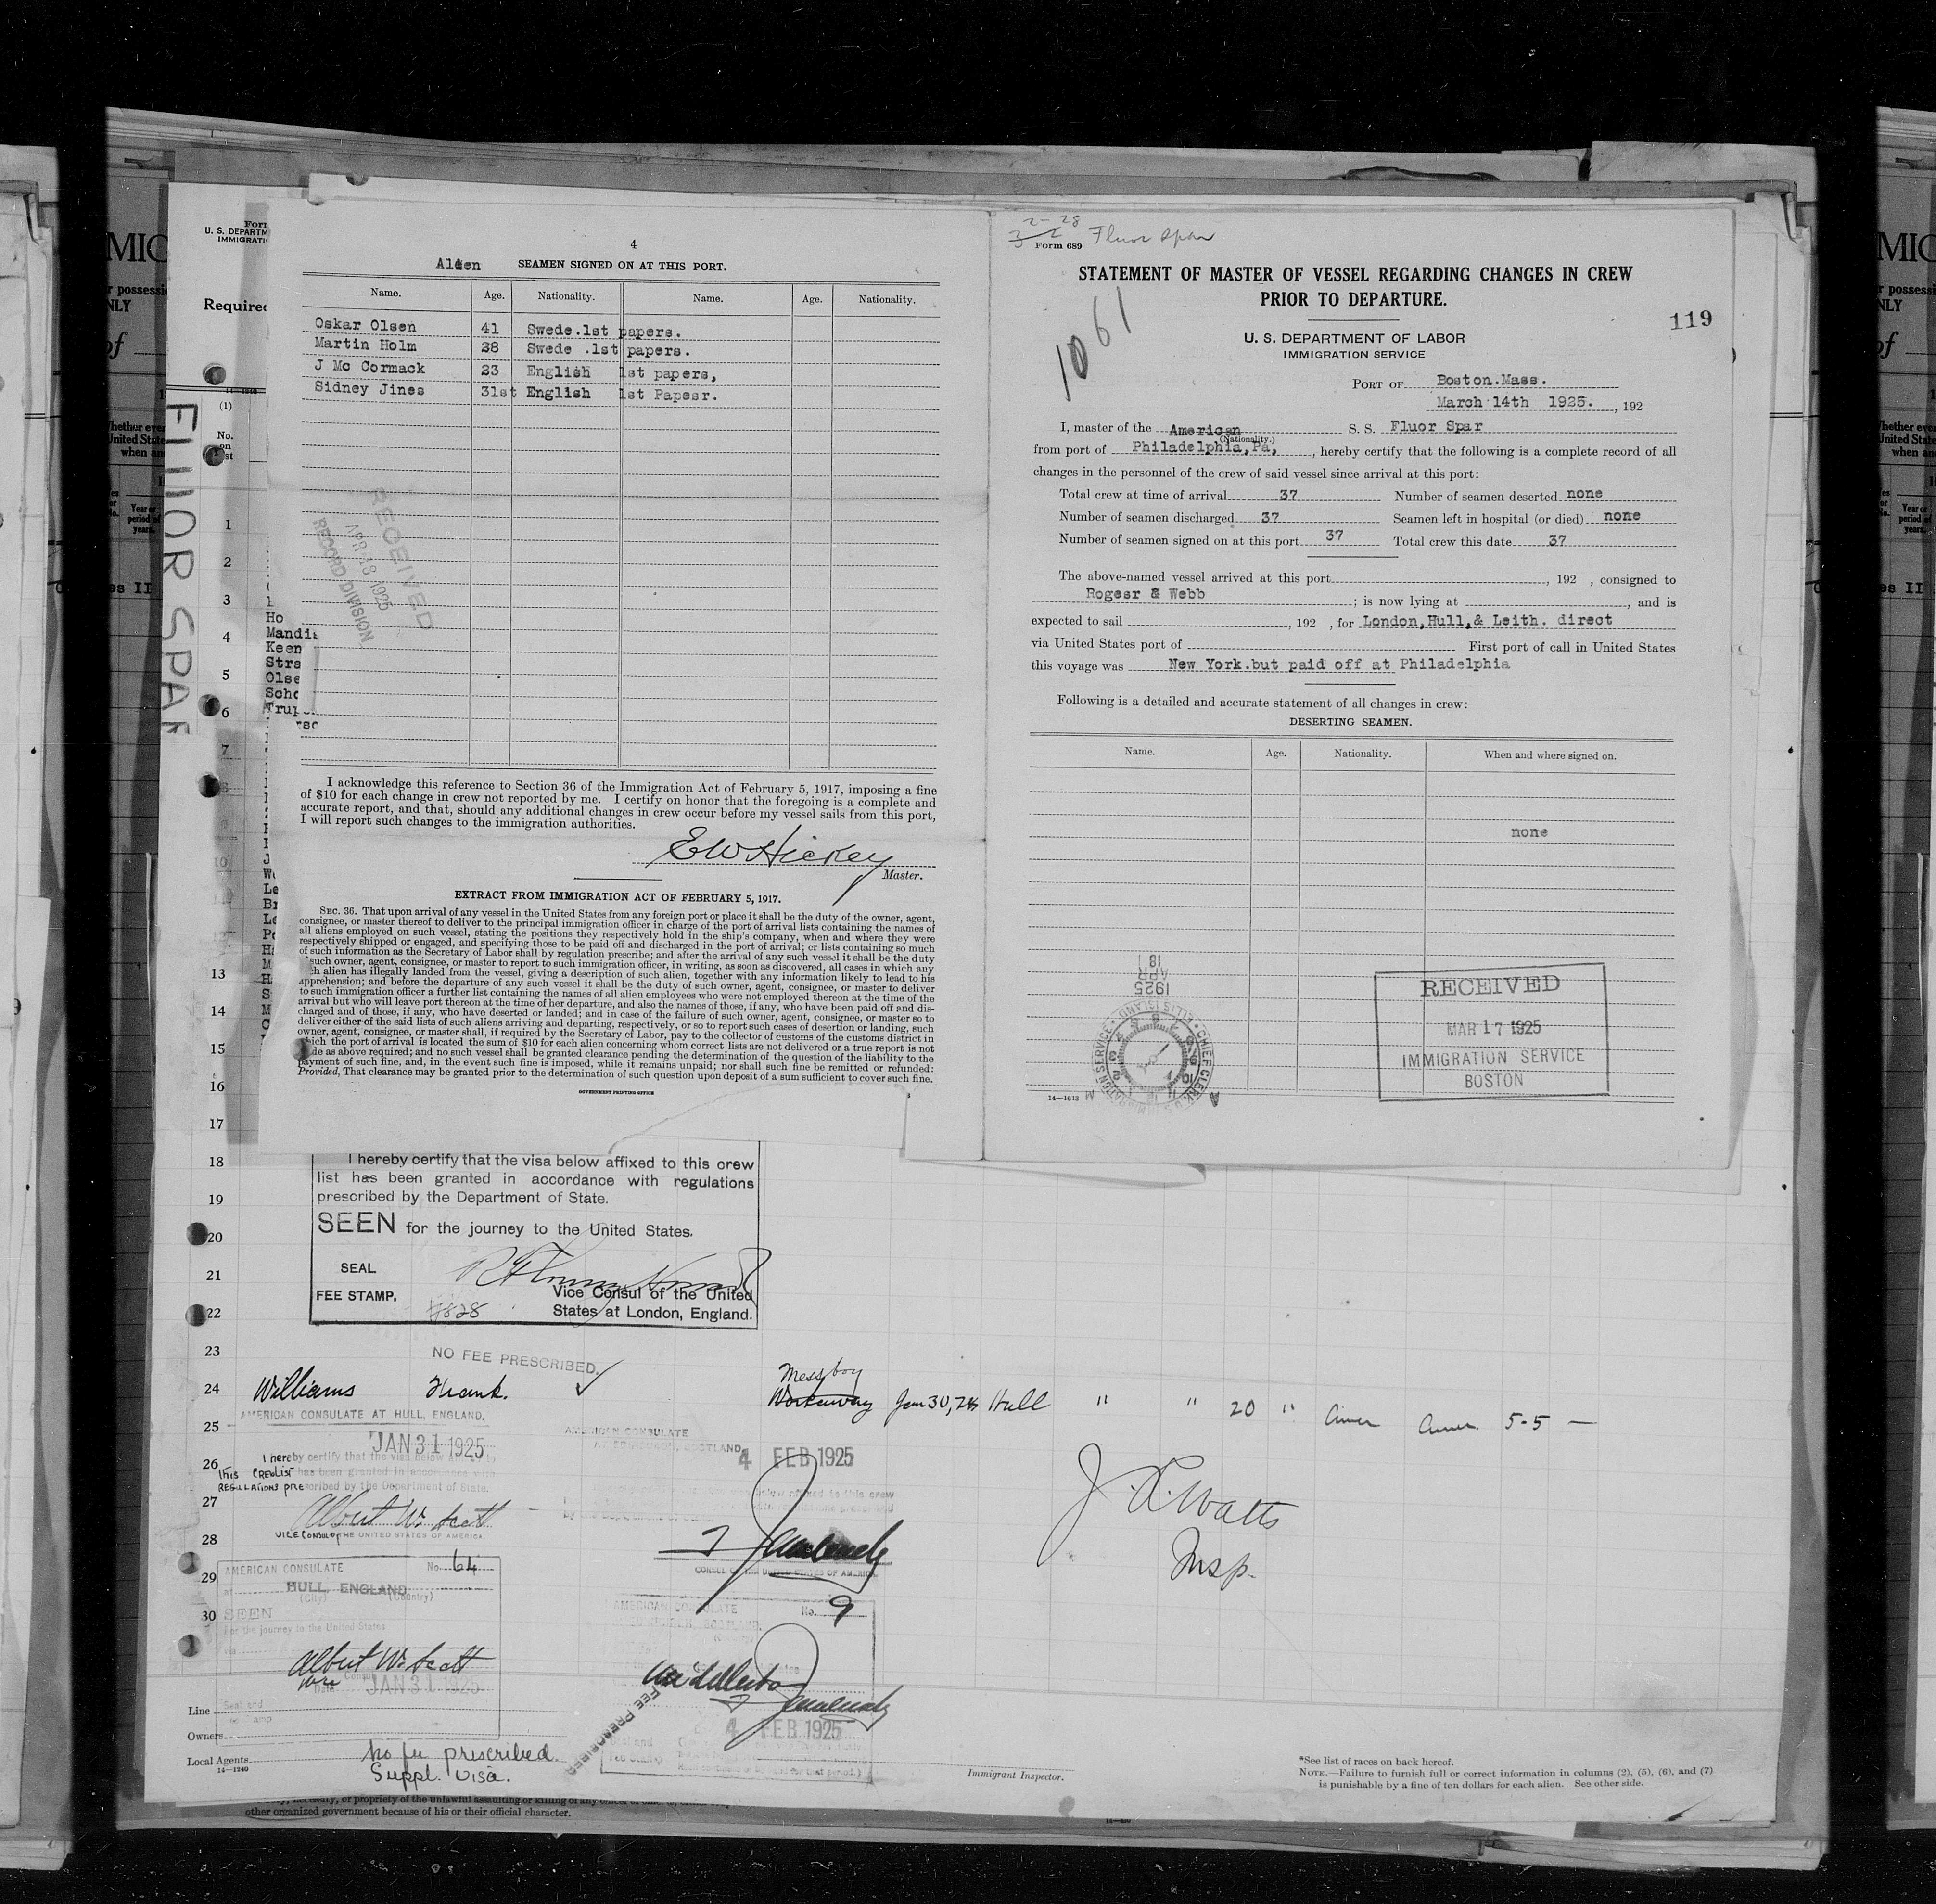 4
Alien SEAMEN SIGNED ON AT THIS PORT.
Name. Age. Nationality. Name. Age. Nationality.
Oskar Olsen 41 Swede.1st papers.
Martin Holm 38 Swede .1st papers.
J Mc Cormack 23 English 1st papers,
Sidney Jines 31st English 1st Papesr.
RECEIVED
APR 18 1925
RECORD DIVISION
I acknowledge this reference to Section 36 of the Immigration Act of February 5, 1917, imposing a fine
of $10 for each change in crew not reported by me. I certify on honor that the foregoing is a complete and
accurate report, and that, should any additional changes in crew occur before my vessel sails from this port,
I will report such changes to the immigration authorities.
E W Hickey
Master.
EXTRACT FROM IMMIGRATION ACT OF FEBRUARY 5, 1917.
SEC. 36. That upon arrival of any vessel in the United States from any foreign port or place it shall be the duty of the owner, agent,
consignee, or master thereof to deliver to the principal immigration officer in charge of the port of arrival lists containing the names of
all aliens employed on such vessel, stating the positions they respectively hold in the ship's company, when and where they were
respectively shipped or engaged, and specifying those to be paid off and discharged in the port of arrival; or lists containing so much
of such information as the Secretary of Labor shall by regulation prescribe; and after the arrival of any such vessel it shall be the duty
such owner, agent, consignee, or master to report to such immigration officer, in writing, as soon as discovered, all cases in which any
ch alien has illegally landed from the vessel, giving a description of such alien, together with any information likely to lead to his
apprehension; and before the departure of any such vessel it shall be the duty of such owner, agent, consignee, or master to deliver
to such immigration officer a further list containing the names of all alien employees who were not employed thereon at the time of the
arrival but who will leave port thereon at the time of her departure, and also the names of those, if any, who have been paid off and dis-
charged and of those, if any, who have deserted or landed; and in case of the failure of such owner, agent, consignee, or master so to
deliver either of the said lists of such aliens arriving and departing, respectively, or so to report such cases of desertion or landing, such
owner, agent, consignee, or master shall, if required by the Secretary of Labor, pay to the collector of customs of the customs district in
which the port of arrival is located the sum of $10 for each alien concerning whom correct lists are not delivered or a true report is not
de as above required; and no such vessel shall be granted clearance pending the determination of the question of the liability to the
payment of such fine, and, in the event such fine is imposed, while it remains unpaid; nor shall such fine be remitted or refunded:
Provided, That clearance may be granted prior to the determination of such question upon deposit of a sum sufficient to cover such fine.
GOVERNMENT PRINTING OFFICE
2-28
Form 689 Fluor Spar
STATEMENT OF MASTER OF VESSEL REGARDING CHANGES IN CREW
PRIOR TO DEPARTURE.
1061
119
U. S. DEPARTMENT OF LABOR
IMMIGRATION SERVICE
PORT OF Boston.Mass.
March 14th 1925. , 192
I, master of the American S. S. Fluor Spar
(Nationality.)
from port of Philadelphia,Pa, , hereby certify that the following is a complete record of all
changes in the personnel of the crew of said vessel since arrival at this port:
Total crew at time of arrival 37 Number of seamen deserted none
Number of seamen discharged 37 Seamen left in hospital (or died) none
Number of seamen signed on at this port 37 Total crew this date 37
The above-named vessel arrived at this port , 192 , consigned to
Rogesr & Webb ; is now lying at , and is
expected to sail , 192 , for London,Hull,& Leith. direct
via United States port of First port of call in United States
this voyage was New York.but paid off at Philadelphia
Following is a detailed and accurate statement of all changes in crew:
DESERTING SEAMEN.
Name. Age. Nationality. When and where signed on.
none
APR 18 1925
RECEIVED
MAR 17 1925
IMMIGRATION SERVICE
BOSTON
14—1613
U. S. DEPARTM
IMMIGRATI
Required
FLUOR SPAR
(1)
No.
on
1
2
3
4
5
6
7
Ho
Mandi
Keen
Stra
Olse
Scho
10
13
14
15
16
17
18
19
20
21
22
23
24
25
26
27
28
29
30
I hereby certify that the visa below affixed to this crew
list has been granted in accordance with regulations
prescribed by the Department of State.
SEEN for the journey to the United States.
SEAL
FEE STAMP.
Vice Consul of the United
States at London, England.
NO FEE PRESCRIBED.
Williams Frank. Messboy Workaway Jan 30, 25 Hull " " 20 " Amer Amer 5-5 —
AMERICAN CONSULATE AT HULL, ENGLAND.
JAN 31 1925
I hereby certify that the visa below
THIS CREWLIST has been granted in accordance with
REGULATIONS prescribed by the Department of State.
Albert W. Scott
VICE CONSUL OF THE UNITED STATES OF AMERICA
AMERICAN CONSULATE No. 64
at HULL, ENGLAND
(City) (Country)
SEEN
For the journey to the United States
Albert W. Scott
Vice Consul
Date JAN 31 1925
AMERICAN CONSULATE
4 FEB 1925
CONSUL OF THE UNITED STATES OF AMERICA
AMERICAN CONSULATE No. 9
4 FEB 1925
FEE PRESCRIBED
J. L. Watts
Insp.
Line
Owners
Local Agents
14—1240
No fee prescribed.
Suppl. visa.
Immigrant Inspector.
*See list of races on back hereof.
NOTE.—Failure to furnish full or correct information in columns (2), (5), (6), and (7)
is punishable by a fine of ten dollars for each alien. See other side.
other organized government because of his or their official character.